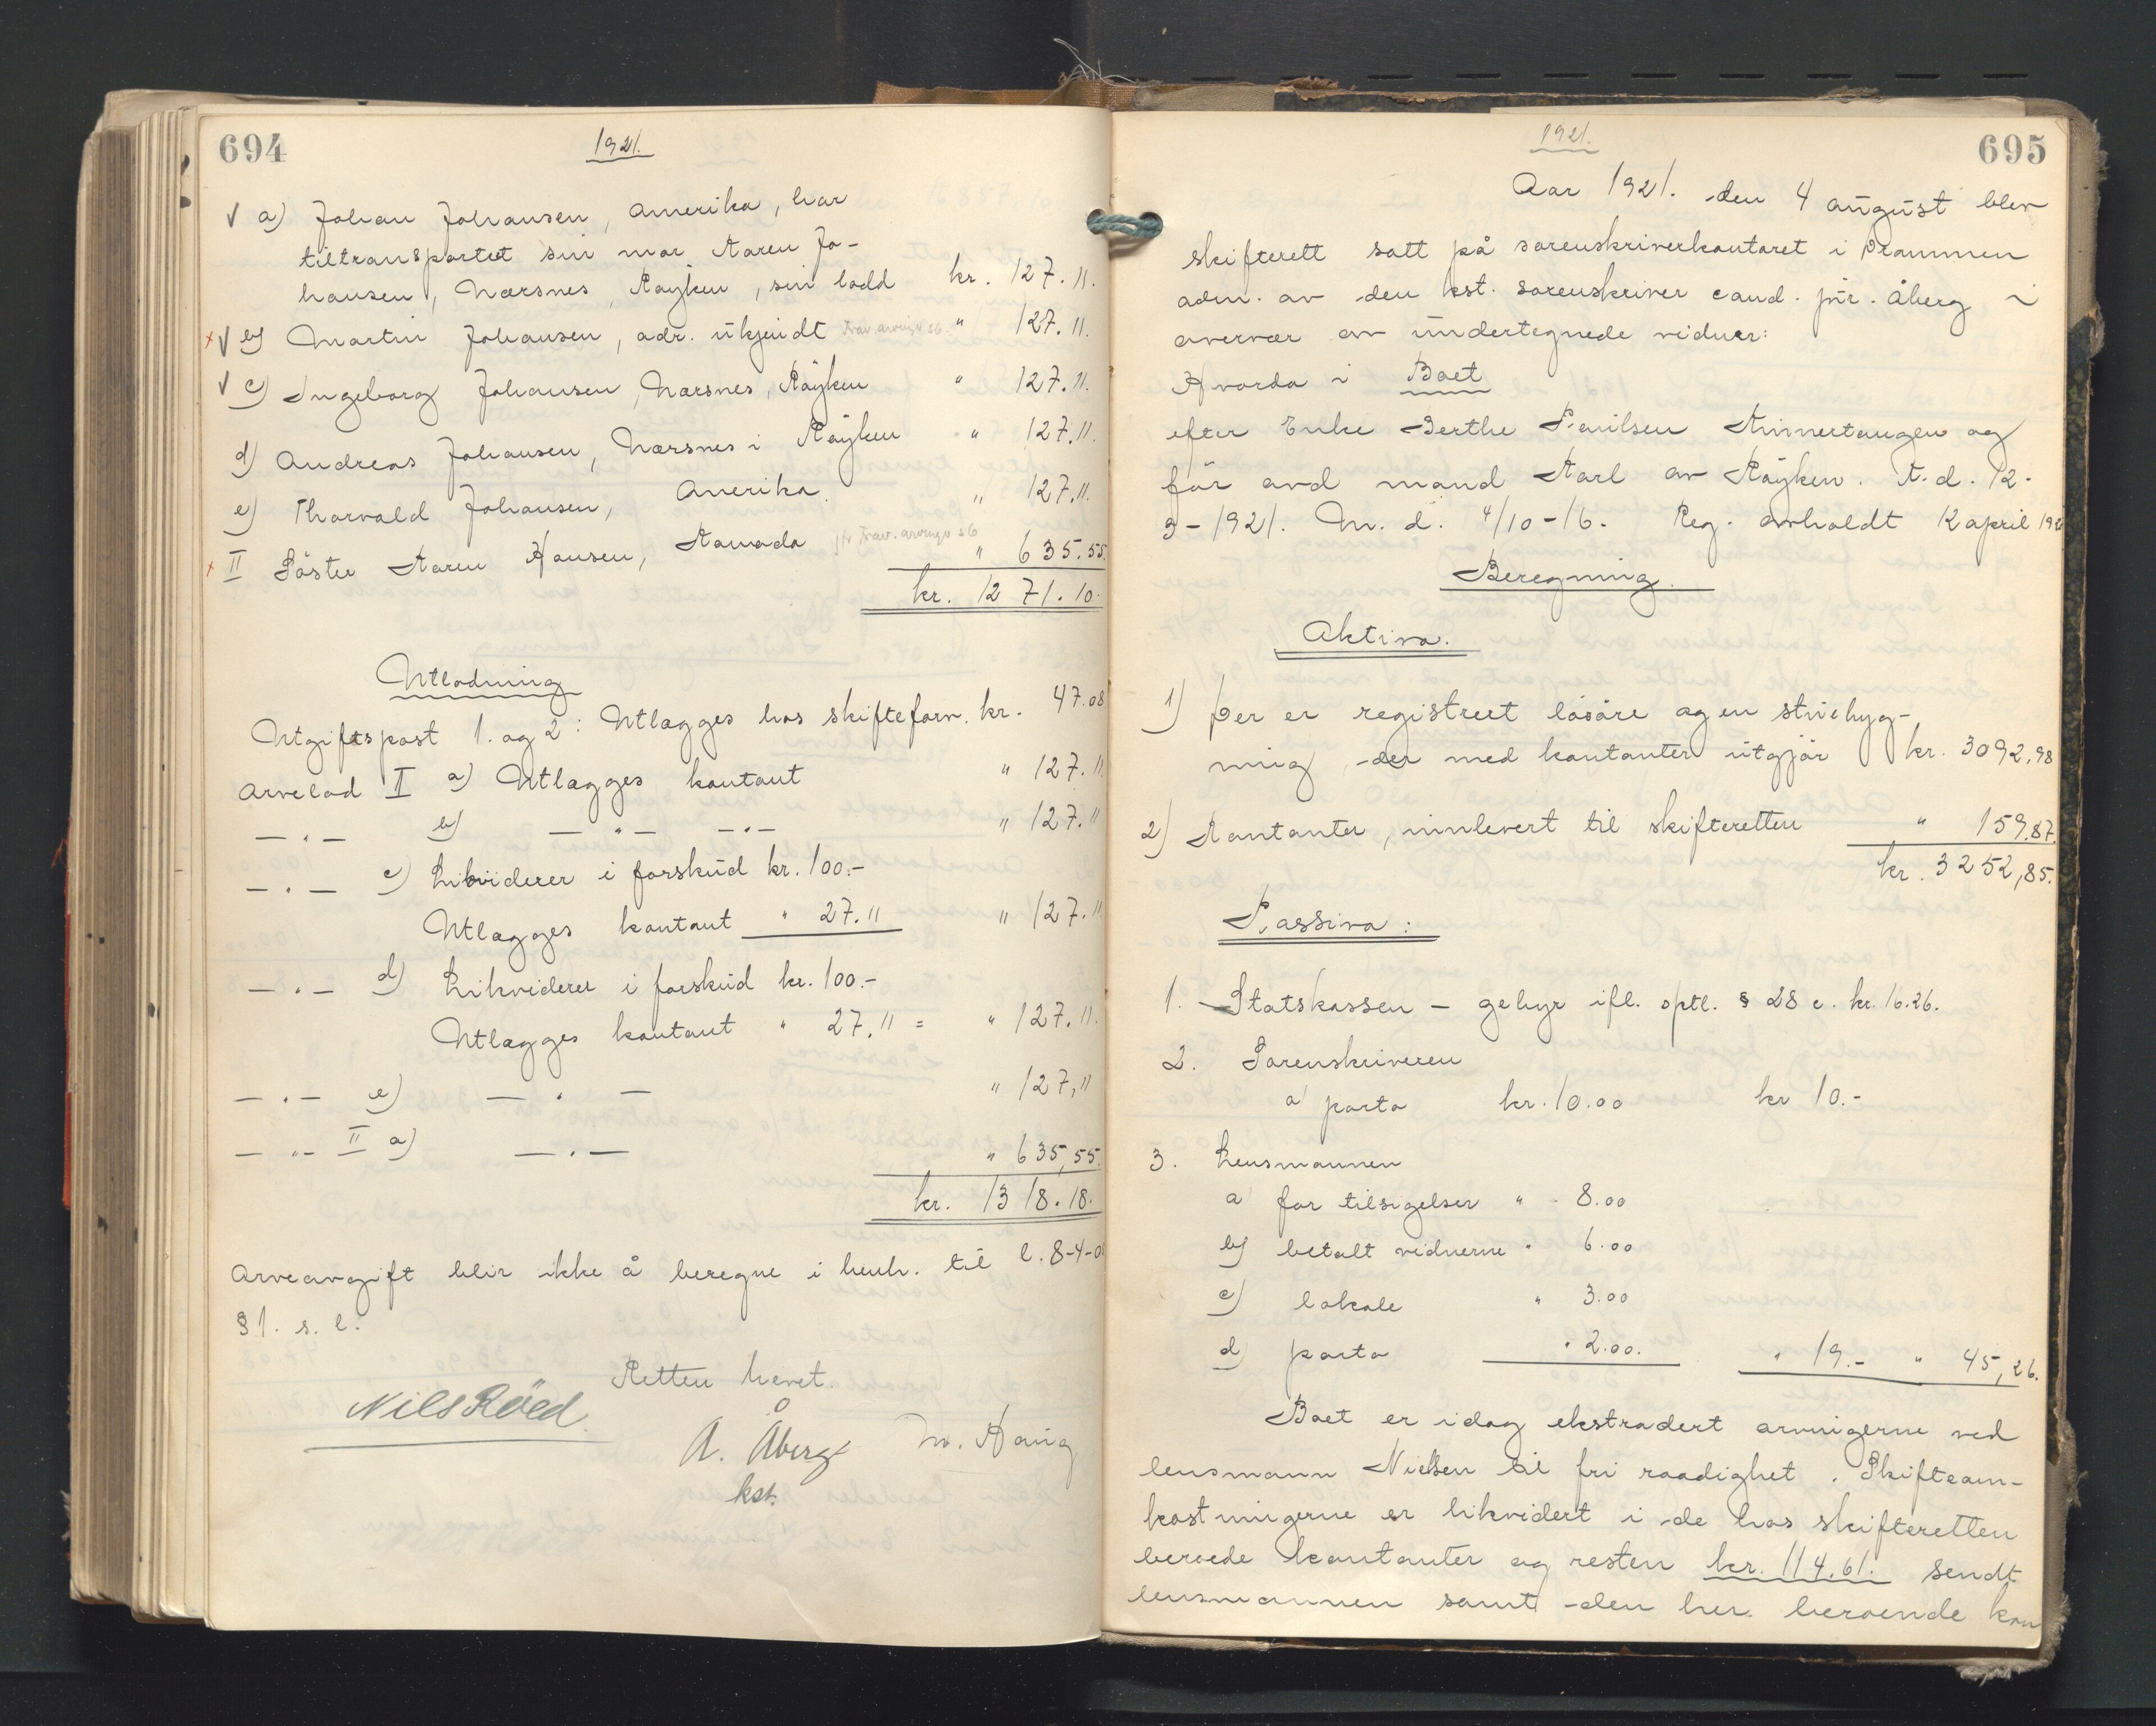 694
1921.
√ a) Johan Johansen, Amerika, har
tiltransportert sin mor Karen Jo-
hansen, Nærsnes, Røyken, sin lodd kr. 127.11.
x √ b) Martin Johansen, adr. ukjendt " 127.11.
√ c) Ingeborg Johansen, Nærsnes, Røyken " 127.11.
d) Andreas Johansen, Nærsnes i Røyken " 127.11.
e) Thorvald Johansen, Amerika. " 127.11.
x II Søster Karen Hansen, Kanada " 635.55
kr. 1271.10.
Utlodning
Utgiftspost 1. og 2: Utlægges hos skifteforv. kr. 47.08
Arvelod I a) Utlægges kontant " 127.11
— " — b) — " — — " — " 127.11
— " — c) Likviderer i forskud kr. 100.-
Utlægges kontant " 27.11 " 127.11
— " — d) Likviderer i forskud kr. 100.-
Utlægges kontant " 27.11 = " 127.11.
— " — e) — " — " 127,11
— " — II a) — " — " 635,55.
kr. 1318.18.
Arveavgift blir ikke å beregne i henh. til l. 8-4-0
§ 1. s. l.
Retten hevet.
Nils Röed.
A. Åberg
kst.
M. Haug
1921.
695
Aar 1921. den 4 august blev
skifterett satt på sorenskriverkontoret i Drammen
adm. av den kst. sorenskriver cand. jur. Åberg i
overvær av undertegnede vidner:
Hvorda i Boet
efter Enke Berthe Paulsen Kinnertangen og
før avd mand Karl av Røyken. K. d. 12-
3-1921. M. d. 4/10-16. Reg. avholdt 12 april 192
Beregning.
Aktiva.
1) Der er registrert løsøre og en stuebyg-
ning, der med kontanter utgjør kr. 3092,98
2) Kontanter, innlevert til skifteretten " 159.87.
kr. 3252,85.
Passiva:
1. Statskassen – gebyr ifl. sptl. § 28 c. kr. 16.26.
2. Sorenskriveren
a) porto kr. 10.00 kr 10.-
3. Lensmannen
a) for tilsigelser " 8.00
b) betalt vidnerne " 6.00
c) lokale " 3.00
d) porto " 2.00. " 19.- " 45,26.
Boet er idag ekstradert arvingerne ved
lensmann Nielsen til fri raadighet. Skifteom-
kostningerne er likvidert i de hos skifteretten
beroede kontanter og resten kr. 114.61. sendt
lensmannen samt den her beroende kon